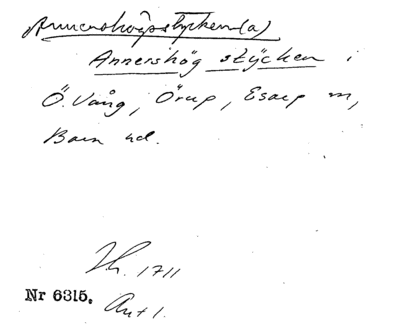 Annershögsstycken(a)
Annershög stÿcken i
Ö. Vång, Örup, Esarp m,
Bara hd.
Jh. 1711
Nr 6315. Ant 1.